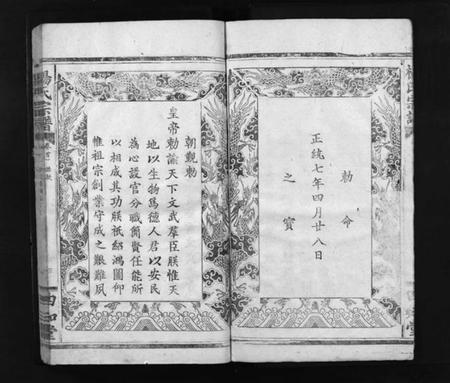 敕命
正統七年四月廿八日
之寶
楊氏宗譜
朝覲勅
皇帝勅諭天下文武羣臣朕惟天
地以生物為德人君以安民
為心設官分職簡賢任能所
以相成其功朕祇紹鴻圖仰
惟祖宗創業守成之艱難夙
楊氏宗譜
四知堂